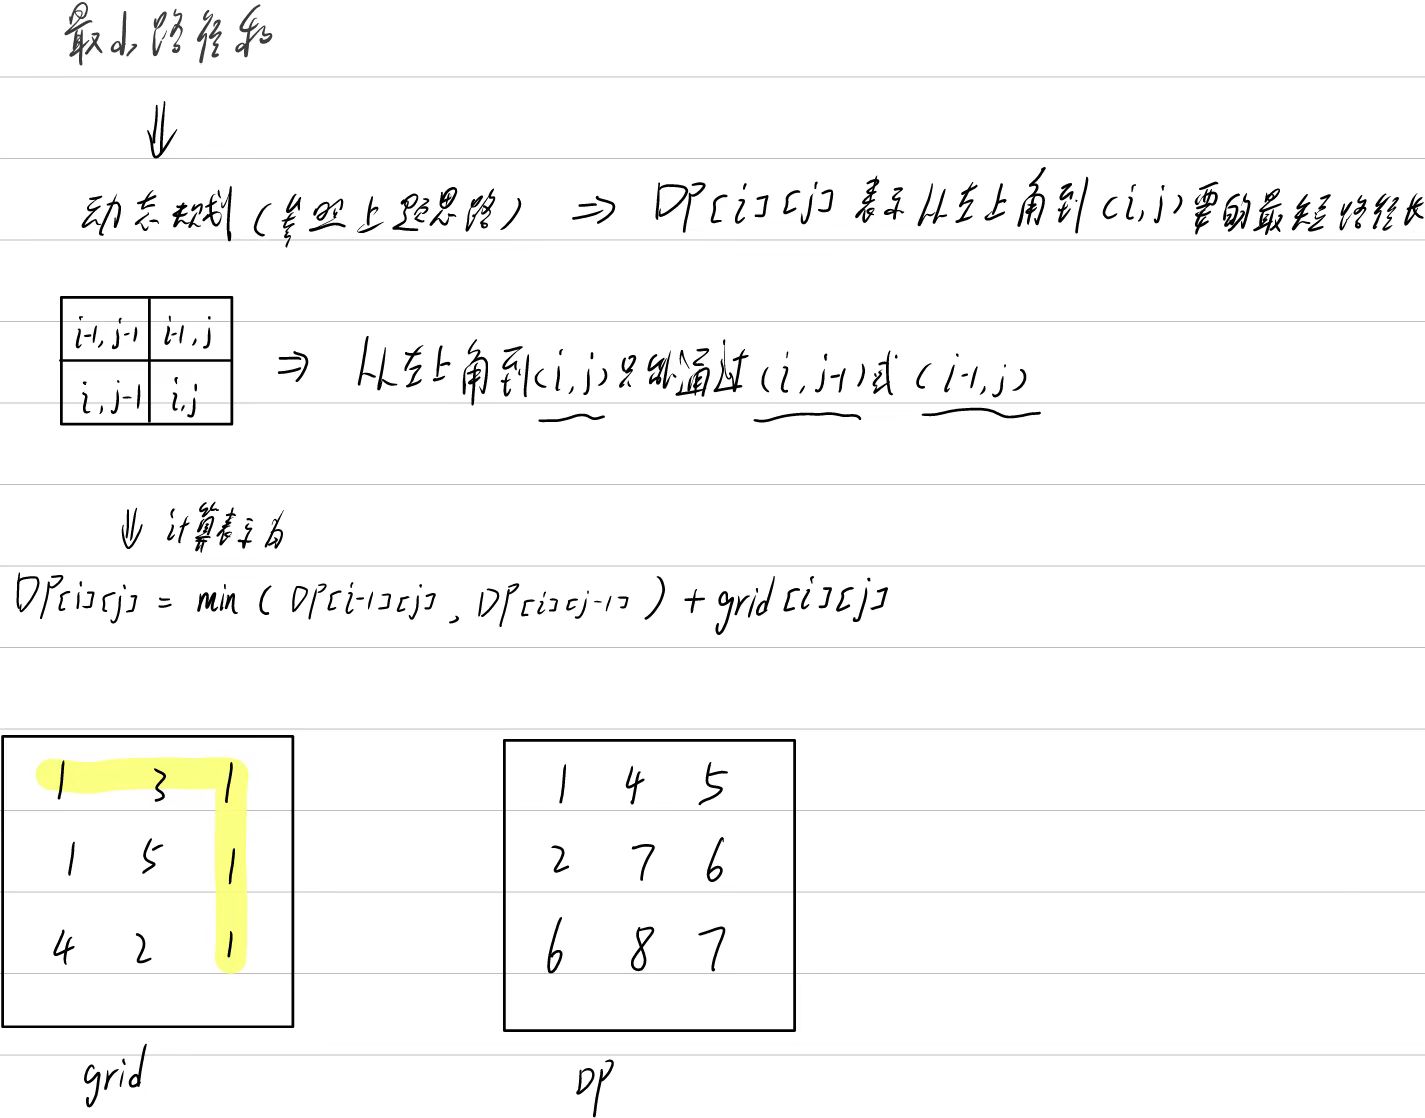 最小路径和
⇓
动态规划(参照上题思路) ⇒ DP[i][j] 表示从左上角到(i,j)要的最短路径长
i-1,j-1 i-1,j
i,j-1 i,j
⇒ 从左上角到(i,j)只能通过(i,j-1)或(i-1,j)
⇓ 计算表示为
DP[i][j] = min(DP[i-1][j], DP[i][j-1]) + grid[i][j]
1 3 1
1 5 1
4 2 1
grid
1 4 5
2 7 6
6 8 7
DP